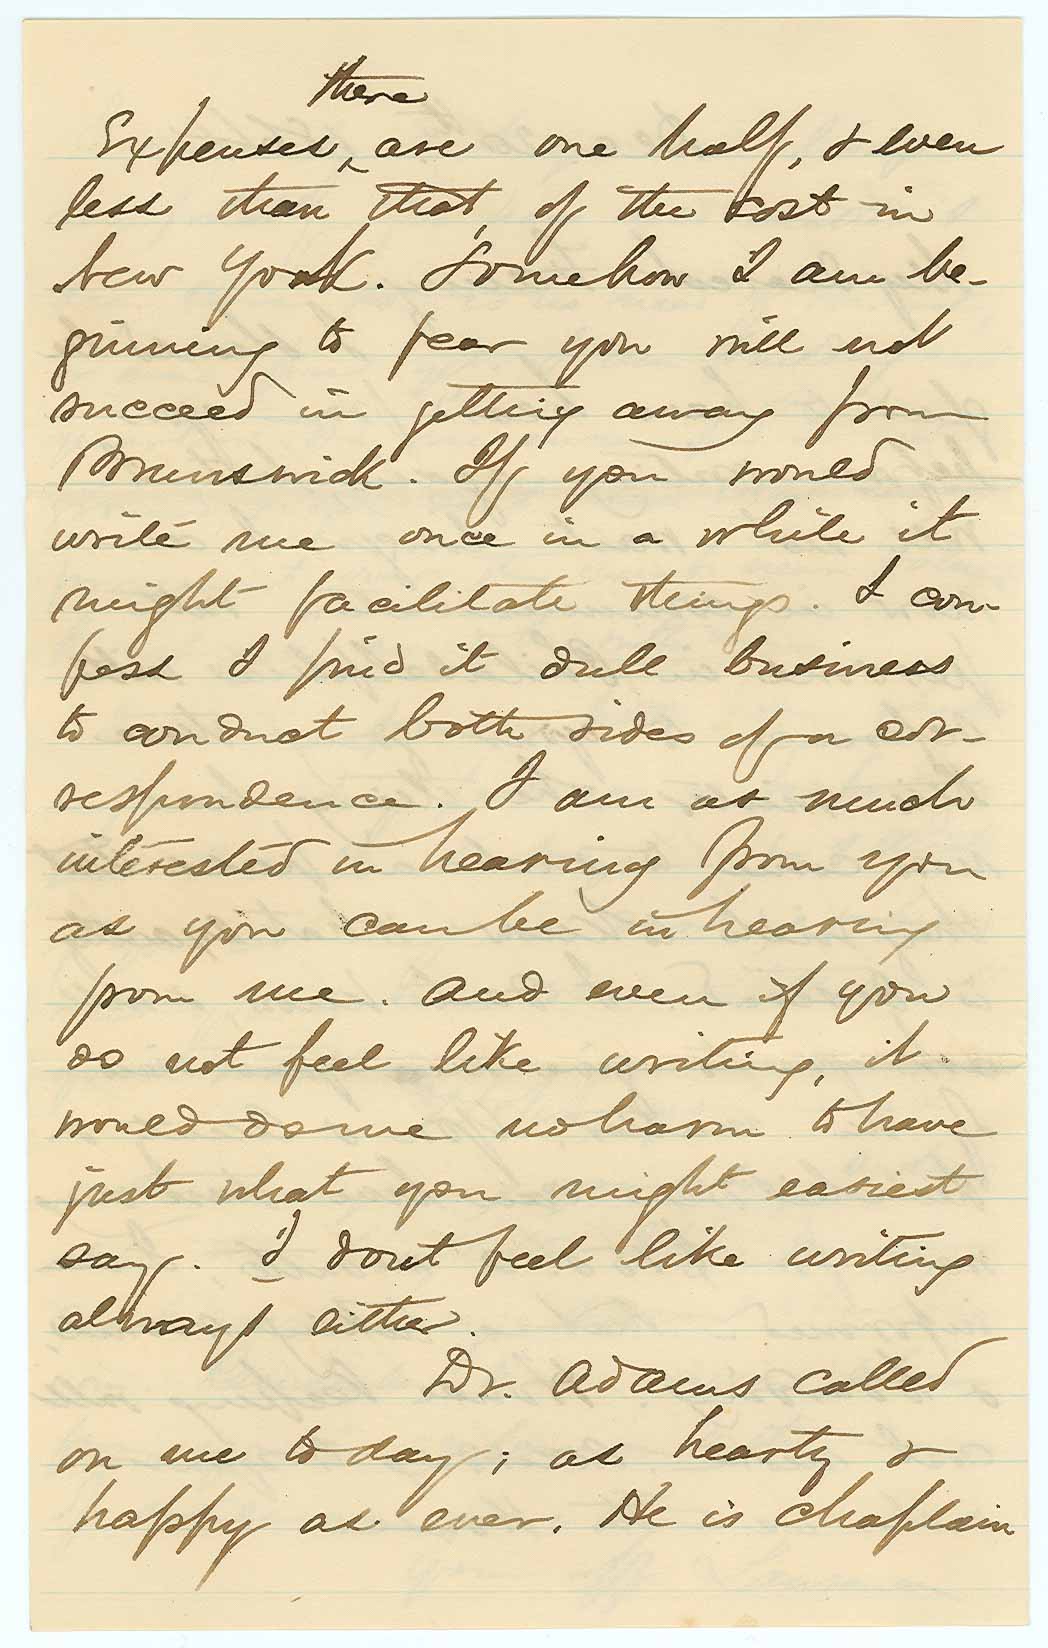 there
Expenses ^ are one half, & even
less than that, of the cost in
New York. Somehow I am be-
ginning to fear you will not
succeed in getting away from
Brunswick. If you would
write me once in a while it
might facilitate things. I con-
fess I find it dull business
to conduct both sides of a cor-
respondence. I am as much
interested in hearing from you
as you can be in hearing
from me. And even if you
do not feel like writing, it
would do me no harm to have
just what you might easiest
say. I dont feel like writing
always either.
Dr. Adams called
on me to day; as hearty &
happy as ever. He is chaplain